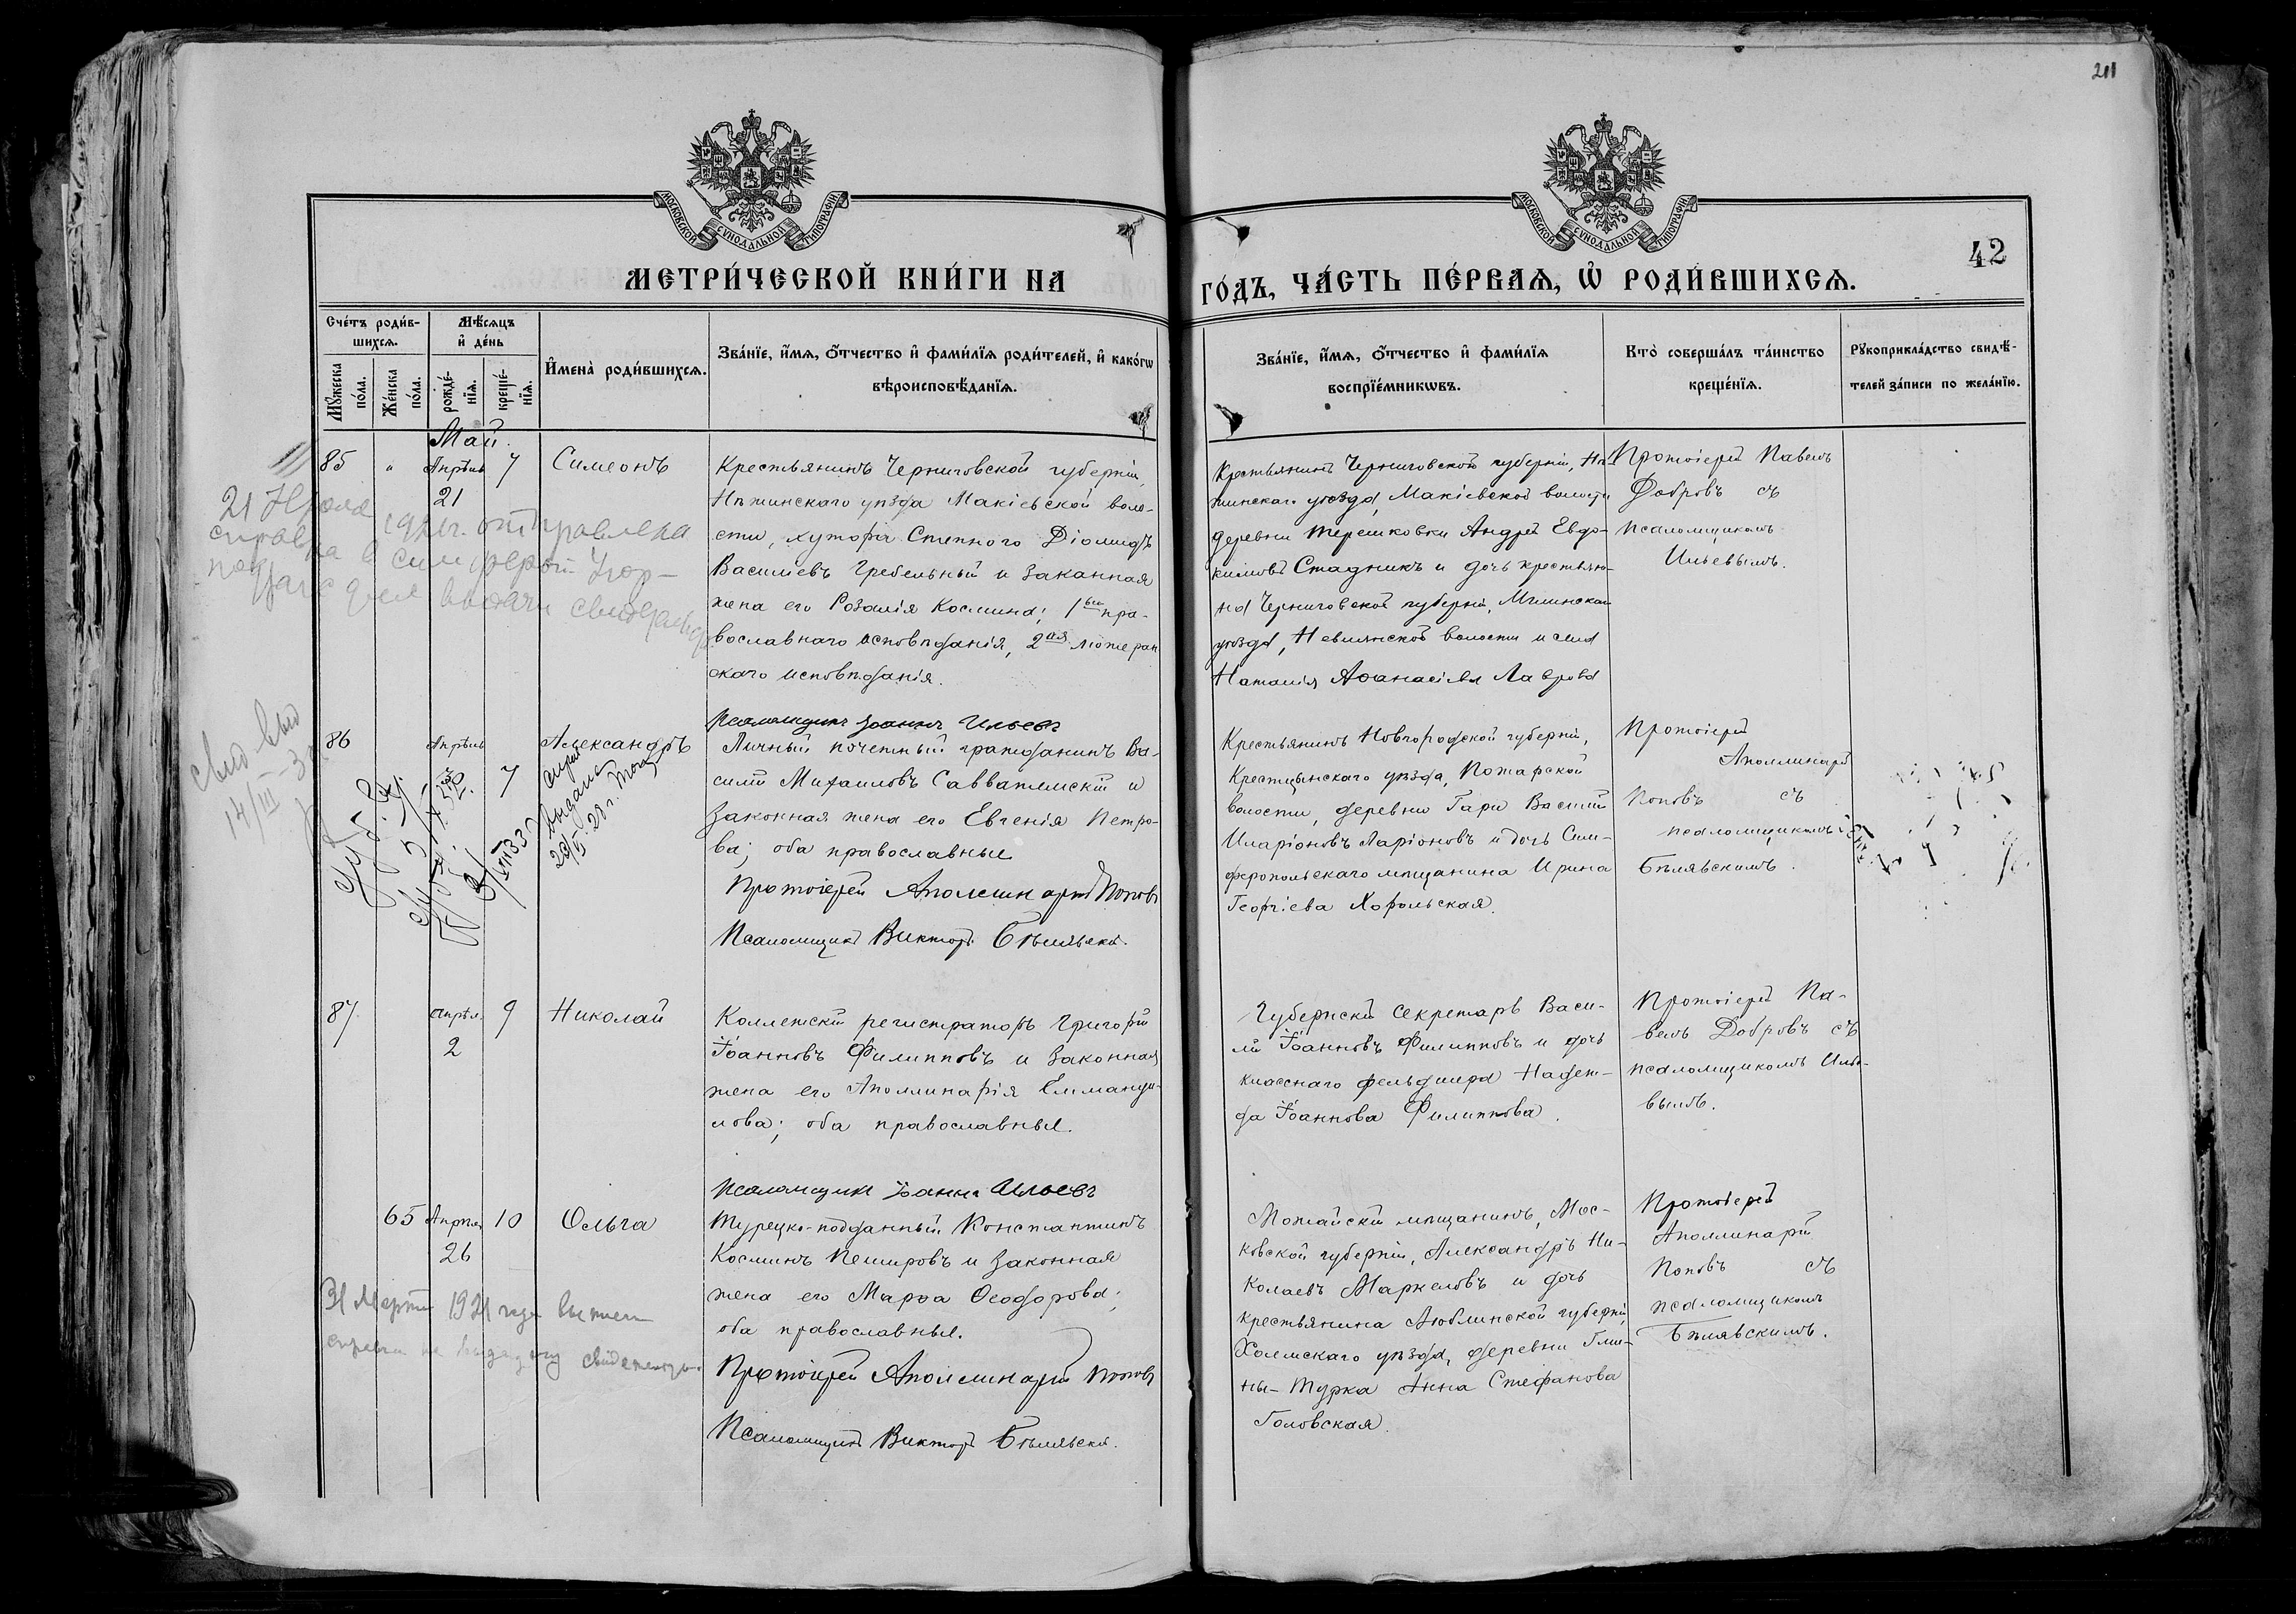 211
МОСКОВСКОЙ СѴНОДАЛЬНОЙ ТИПОГРАФІИ
МОСКОВСКОЙ СѴНОДАЛЬНОЙ ТИПОГРАФІИ
42
МЕТРИ́ЧЕСКОЙ КНИ́ГИ НА
ГО́ДЪ, ЧА́СТЬ ПЕ́РВАѦ, Ѡ҆ РОДИ́ВШИХСѦ.
Сче́тъ роди́в-
шихсѧ.
Мѣ́сѧцъ
и҆ де́нь
Мꙋ́жеска
по́ла.
Же́нска
по́ла.
рожде́-
нїѧ.
креще́-
нїѧ.
И҆мена̀ роди́вшихсѧ.
Зва́нїе, и҆́мѧ, ѻ҆́тчество и҆ фами́лїѧ роди́телей, и҆ како́гѡ
вѣроисповѣ́данїѧ.
Зва́нїе, и҆́мѧ, ѻ҆́тчество и҆ фами́лїѧ
воспрїе́мникѡвъ.
Кто̀ соверша́лъ та́инство
креще́нїѧ.
Рꙋкоприкла́дство свидѣ́-
телей за́писи по жела́нїю.
Май.
85 " Апрѣль 7 Симеонъ
21
Крестьянинъ Черниговской губерніи,
Нѣжинскаго уѣзда Макіевской воло-
сти, хутора Степного Діомидъ
Василіевъ Гребельный и законная
жена его Розалія Космина; 1вый пра-
вославнаго исповѣданія, 2ая лютеран
скаго исповѣданія.
Псаломщикъ Іоаннъ Ильевъ
Крестьянинъ Черниговской губерніи, Нѣ
жинскаго уѣзда, Макіевской волости
деревни Терешковки Андрей Евдо-
кимовъ Стадникъ и дочь крестьяни-
на Черниговской губерніи, Мглинскаго
уѣзда,
Наталія Аѳанасіева Лаврова
Протоіерей Павелъ
Добровъ съ
псаломщикомъ
Ильевымъ.
21
справка в
86 Апрѣль 7 Александръ
30
выдана
Личный почетный гражданинъ Ва-
силій Михаиловъ Савватеимскій и
законная жена его Евгенія Петро-
ва; оба православные
Протоіерей Аполлинарій Поповъ
Псаломщикъ Викторъ Бѣлявскій.
Крестьянинъ Новгородской губерніи,
Крестецкнскаго уѣзда, Пожарской
волости, деревни Гари Василій
Иларіоновъ Ларіоновъ и дочь Сим-
феропольскаго мѣщанина Ирина
Георгіева Хорольская.
Протоіерей
Аполлинарій
Поповъ съ
псаломщикомъ
Бѣлявскимъ.
87 Апрѣл. 9 Николай
2
Коллежскій регистраторъ Григорій
Іоанновъ Филипповъ и законная
жена его Аполлинарія Еммануи-
лова; оба православные.
Псаломщикъ Іоаннъ Ильевъ
Губернскій секретарь Васи-
лій Іоанновъ Филипповъ и дочь
класснаго фельдшера Надеж-
да Іоаннова Филиппова.
Протоіерей Па-
велъ Добровъ съ
псаломщикомъ Илье-
вымъ.
65 Апрѣля 10 Ольга
26
Турецко-подданный Константинъ
Косминъ Пешировъ и законная
жена его Марѳа Ѳеодорова;
оба православные.
Протоіерей Аполлинарій Поповъ
Псаломщикъ Викторъ Бѣлявскій.
Можайскій мѣщанинъ, Мос-
ковской губерніи, Александръ Ни-
колаевъ Маркеловъ и дочь
крестьянина Люблинской губерніи,
Холмскаго уѣзда, деревни Гли-
ны-Турка Анна Стефанова
Головская.
Протоіерей
Аполлинарій
Поповъ съ
псаломщикомъ
Бѣлявскимъ.
31 Марта 1921 года